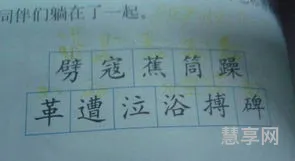 司伴们躺在了一起。
劈寇蕉筒躁
革遭泣浴搏碑
慧享网